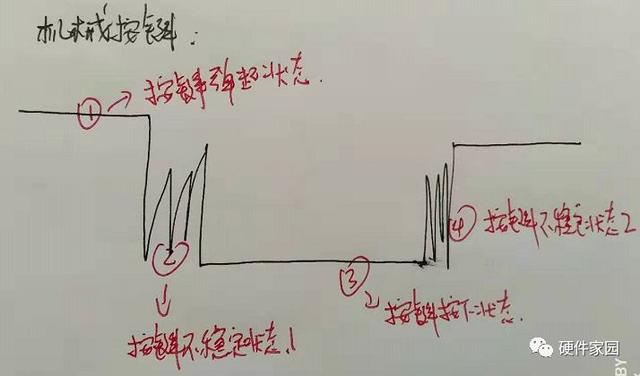 机械按键:
① → 按键弹起状态.
②
按键不稳定状态1
③
按键按下状态.
④ 按键不稳定状态2
硬件家园
BY